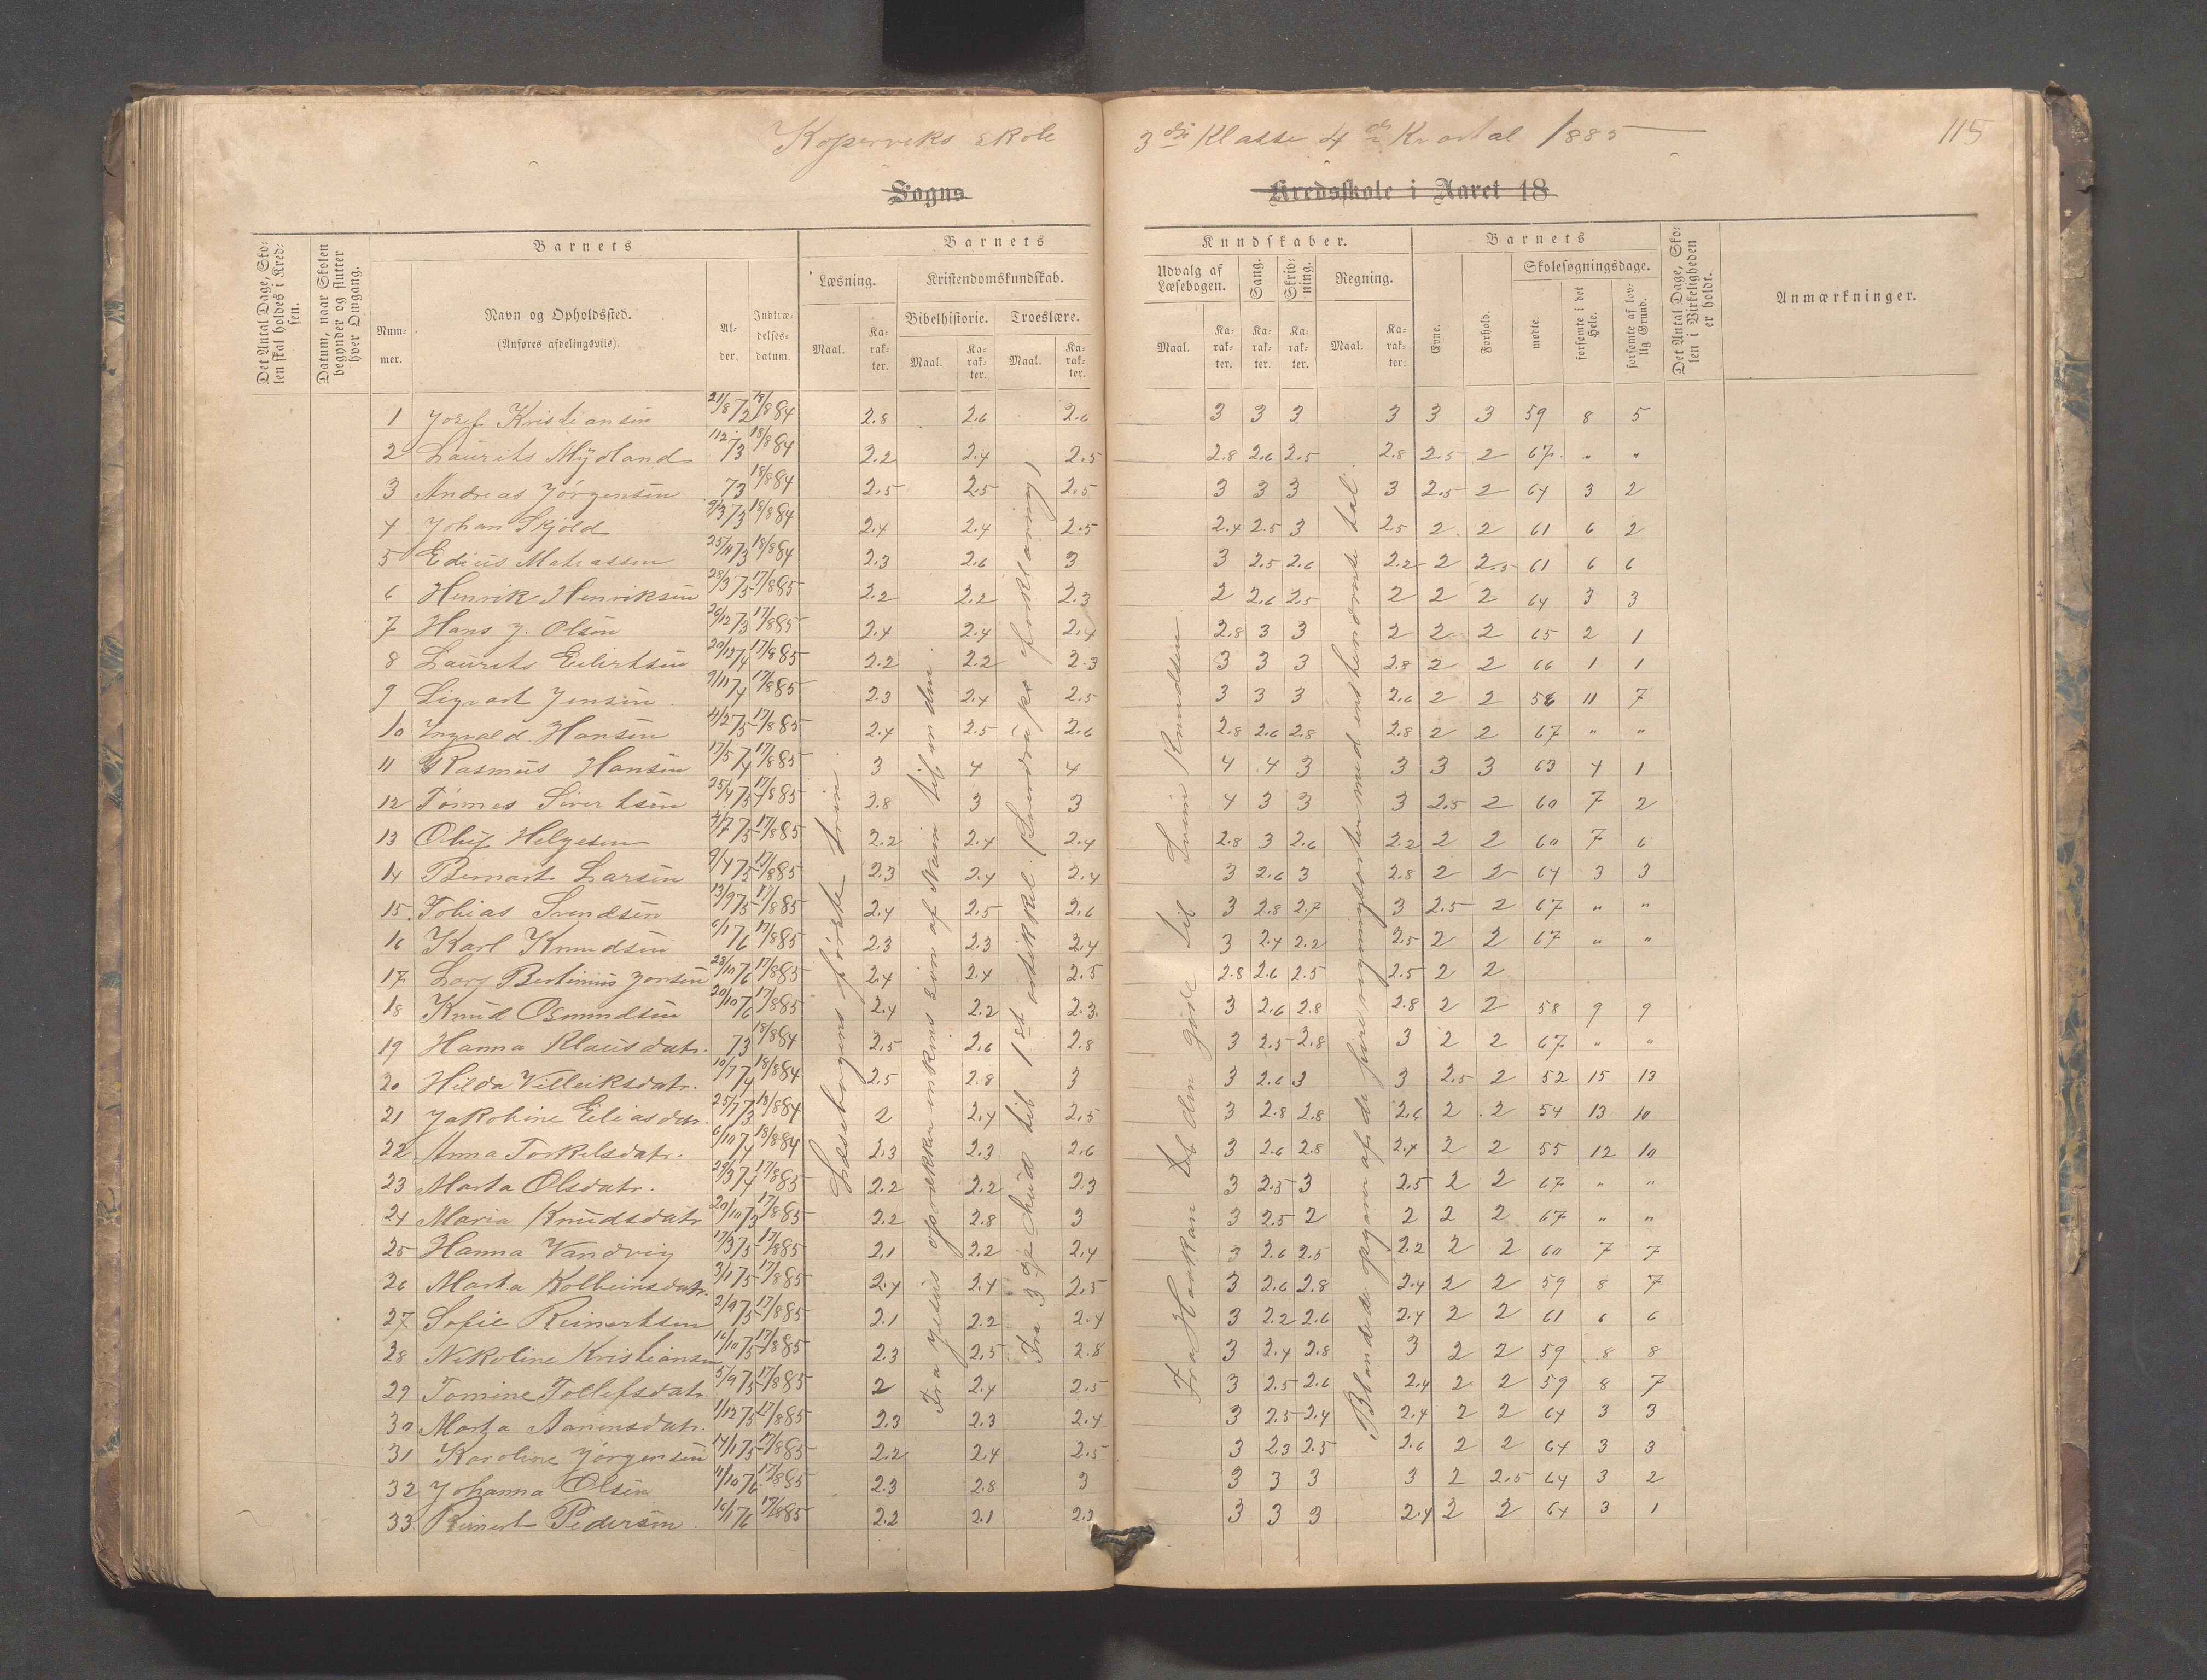 Koperviks skole 3die Klasse 4de Kvartal 1885 115
Sogns Kredsskole i Aaret 18
Det Antal Dage, Skolen skal holdes i Kredsen.
Datum, naar Skolen begynder og slutter hver Omgang.
Barnets
Nummer.
Navn og Opholdssted.
(Anføres afdelingsviis).
Alder.
Indtrædelsesdatum.
Barnets Kundskaber.
Læsning.
Maal. Karakter.
Kristendomskundskab.
Bibelhistorie. Troeslære.
Maal. Karakter. Maal. Karakter.
Udvalg af Læsebogen.
Maal. Karakter.
Sang. Karakter.
Skrivning. Karakter.
Regning.
Maal. Karakter.
Barnets
Evne. Forhold.
Skolesøgningsdage.
mødte. forsømte i det Hele. forsømte af lovlig Grund.
Det Antal Dage, Skolen i Virkeligheden er holdt.
Anmærkninger.
1 Josef Kristiansen 21/8 72 18/8 84 2.8 2.6 2.6 3 3 3 3 3 3 59 8 5
2 Laurits Mydland 73 18/8 84 2.2 2.4 2.5 2.8 2.6 2.5 2.8 2.5 2 67 " "
3 Andreas Jörgensen 73 18/8 84 2.5 2.5 2.5 3 3 3 3 2.5 2 64 3 2
4 Johan Skjöld 73 18/8 84 2.4 2.4 2.5 2.4 2.5 3 2.5 2 2 61 6 2
5 Edvis Matiassen 25/11 73 18/8 84 2.3 2.6 3 3 2.5 2.6 2.2 2 2.5 61 6 6
6 Henrik Henriksen 28/3 75 17/8 85 2.2 2.2 2.3 2 2.6 2.5 2 2 2 64 3 3
7 Hans J. Olsen 26/12 73 17/8 85 2.4 2.4 2.4 2.8 3 3 2 2 2 65 2 1
8 Laurits Eilertsen 20/12 74 17/8 85 2.2 2.2 2.3 3 3 3 2.8 2 2 66 1 1
9 Sigvart Jensen 9/11 74 17/8 85 2.3 2.4 2.5 3 3 3 2.6 2 2 56 11 7
10 Ingvald Hansen 75 17/8 85 2.4 2.5 2.6 2.8 2.6 2.8 2.8 2 2 67 " "
11 Rasmus Hansen 17/5 74 17/8 85 3 4 4 4 4 3 3 3 3 63 4 1
12 Tönnes Sivertsen 25/4 75 17/8 85 2.8 3 3 4 3 3 3 2.5 2 60 7 2
13 Oluf Helgesen 75 17/8 85 2.2 2.4 2.4 2.8 3 2.6 2.2 2 2 60 7 6
14 Bernart Larsen 9/4 75 17/8 85 2.3 2.4 2.4 3 2.6 3 2.8 2 2 64 3 3
15. Tobias Svendsen 13/9 75 17/8 85 2.4 2.5 2.6 3 2.8 2.7 3 2.5 2 67 " "
16 Karl Knudsen 6/1 76 17/8 85 2.3 2.3 2.4 3 2.4 2.2 2.5 2 2 67 " "
17 Lars Bertinius Jonsen 28/10 76 17/8 85 2.4 2.4 2.5 2.8 2.6 2.5 2.5 2 2
18 Knud Osmundsen 20/10 76 17/8 85 2.4 2.2 2.3. 3 2.6 2.8 2.8 2 2 58 9 9
19 Hanna Klausdatr. 73 18/8 84 2.5 2.6 2.8 3 2.5 2.8 3 2 2 67 " "
20 Hilda Villeiksdatr. 10/7 74 18/8 84 2.5 2.8 3 3 2.6 3 3 2.5 2 52 15 13
21 Jakobine Eliasdatr. 25/7 73 18/8 84 2 2.4 2.5 3 2.8 2.8 2.6 2 2 54 13 10
22 Anna Torkelsdatr. 6/10 74 18/8 84 2.3 2.3 2.6 3 2.6 2.8 2.4 2 2 55 12 10
23 Marta Olsdatr. 29/3 74 17/8 85 2.2 2.2 2.3 3 2.5 3 2.5 2 2 67 " "
24 Maria Knudsdatr 20/10 73 17/8 85 2.2 2.8 3 3 2.5 2 2 2 2 67 " "
25 Hanna Vandvig 17/3 75 17/8 85 2.1 2.2 2.4 3 2.6 2.5 2.2 2 2 60 7 7
26 Marta Kolbeinsdatr. 3/1 75 17/8 85 2.4 2.4 2.5 3 2.6 2.8 2.4 2 2 59 8 7
27 Sofie Reinertsen 2/9 75 17/8 85 2.1 2.2 2.4 3 2.2 2.6 2.4 2 2 61 6 6
28 Nikoline Kristiansen 16/10 75 17/8 85 2.3 2.5 2.8 3 2.4 2.8 3 2 2 59 8 8
29 Tomine Tollefsdatr. 5/9 75 17/8 85 2 2.4 2.5 3 2.5 2.6 2.4 2 2 59 8 7
30 Marta Aanensdatr. 1/12 75 17/8 85 2.3 2.3 2.4 3 2.5 2.4 2.4 2 2 64 3 3
31 Karoline Jörgensen 14/1 75 17/8 85 2.2 2.4 2.5 3 2.3 2.5 2.6 2 2 64 3 3
32 Johanna Olsen 11/10 76 17/8 85 2.3 2.8 3 3 3 3 3 2 2.5 64 3 2
33. Reinert Pedersen. 16/1 76 17/8 85 2.2 2.1 2.3 3 3 3 2.4 2 2 64 3 1
Læsebogens første trin.
Fra Jesus opvækker enkens søn af Nain til enden.
Fra 3die bud til 1ste artikkel (Sverdrups forklaring)
Fra Haakan den gode til Svein Knudsen
Blandede opgaver af de fire regningsarter med ensbenævnte tal.